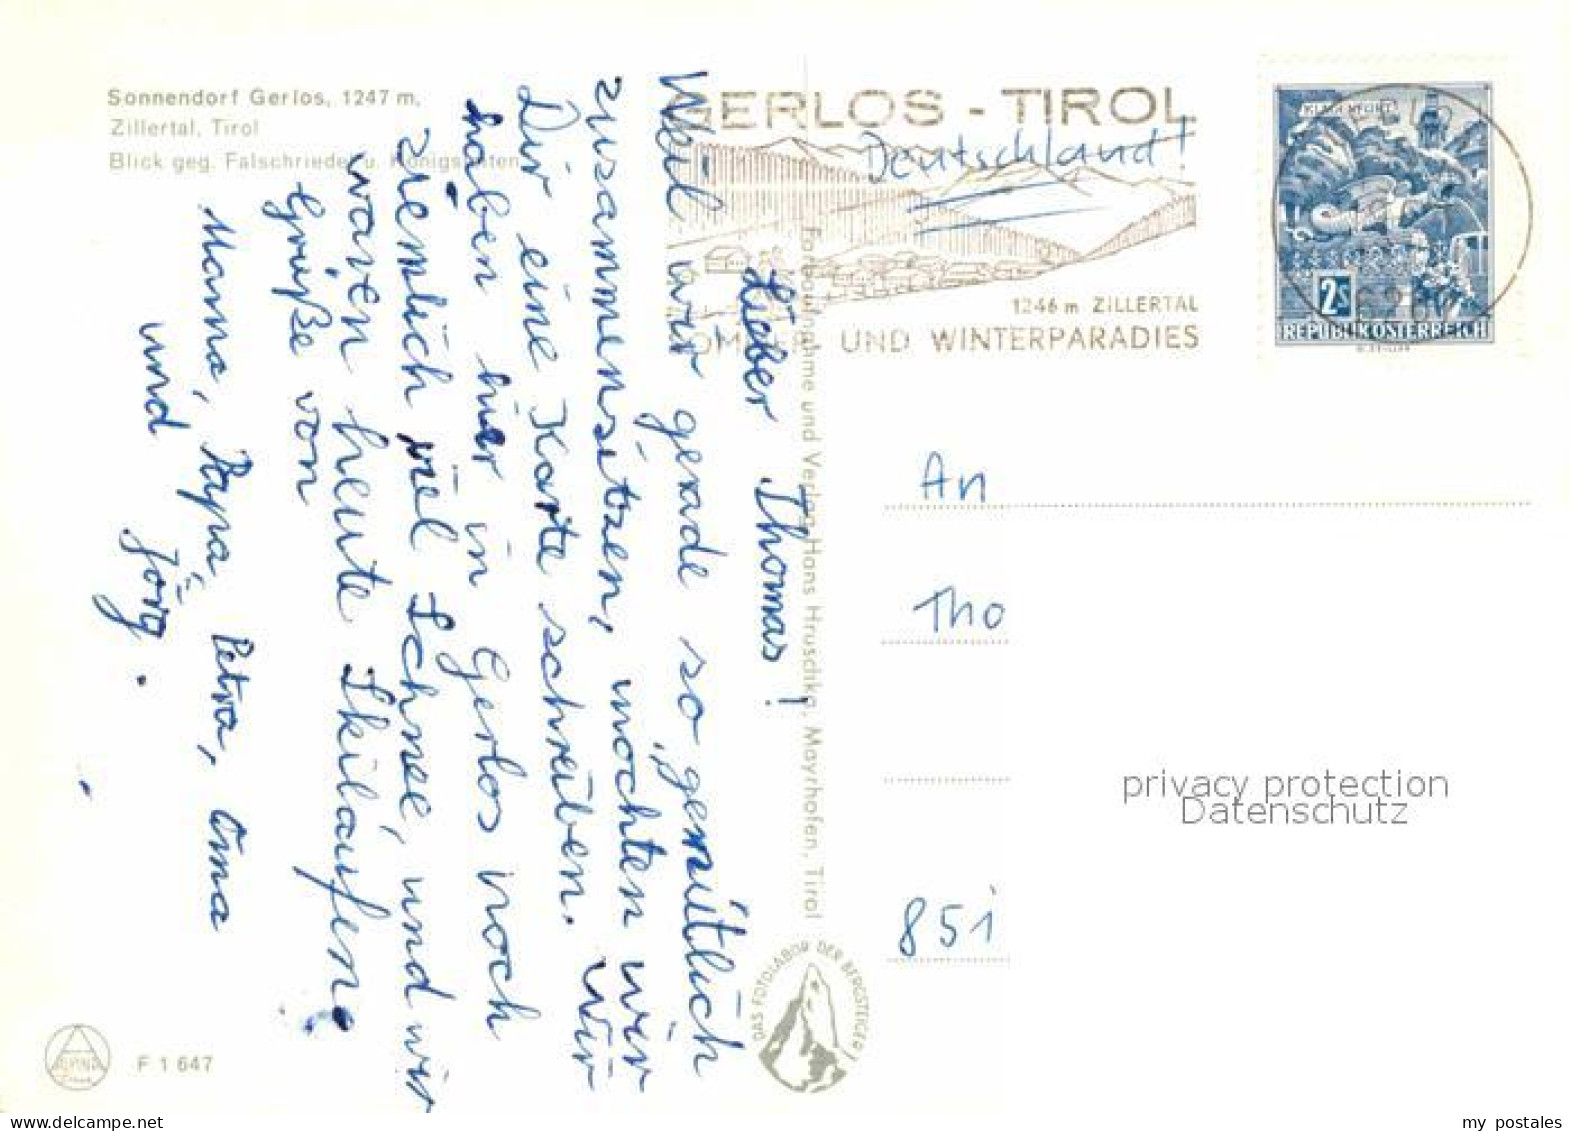 Sonnendorf Gerlos, 1247 m,
Zillertal, Tirol
Blick geg. Falschriedel u. Königsleiten
Lieber Thomas!
Weil wir gerade so gemütlich
zusammensitzen, möchten wir
Dir eine Karte schreiben. Wir
haben hier in Gerlos noch
ziemlich viel Schnee, und wir
waren heute Skilaufen.
Grüße von
Mama, Papa, Petra, Oma
und Jörg.
Farbaufnahme und Verlag Hans Hruschka, Mayrhofen, Tirol
DAS FOTOLABOR DER BERGSTEIGER
F 1 647
GERLOS - TIROL
Deutschland!
1246 m ZILLERTAL
SOMMER- UND WINTERPARADIES
KLAGENFURT
2S
REPUBLIK ÖSTERREICH
An
Tho
851
privacy protection
Datenschutz
my postales